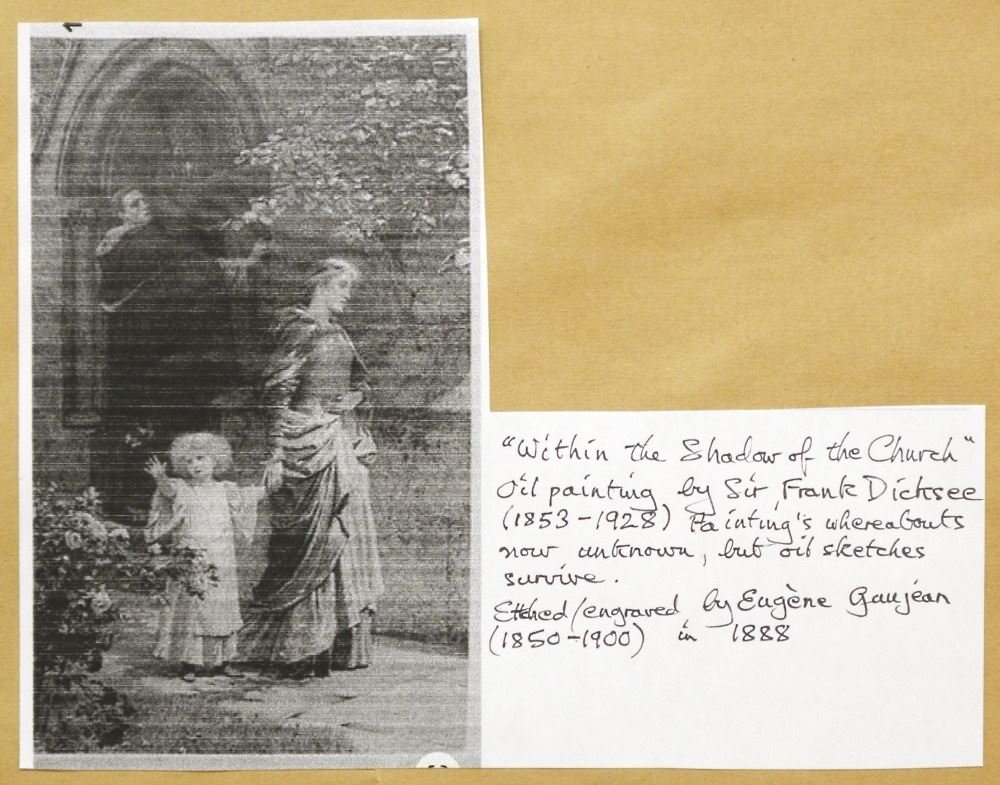 1
"Within the Shadow of the Church"
Oil painting by Sir Frank Dicksee
(1853-1928) Painting's whereabouts
now unknown, but oil sketches
survive.
Etched/engraved by Eugène Gaujean
(1850-1900) in 1888